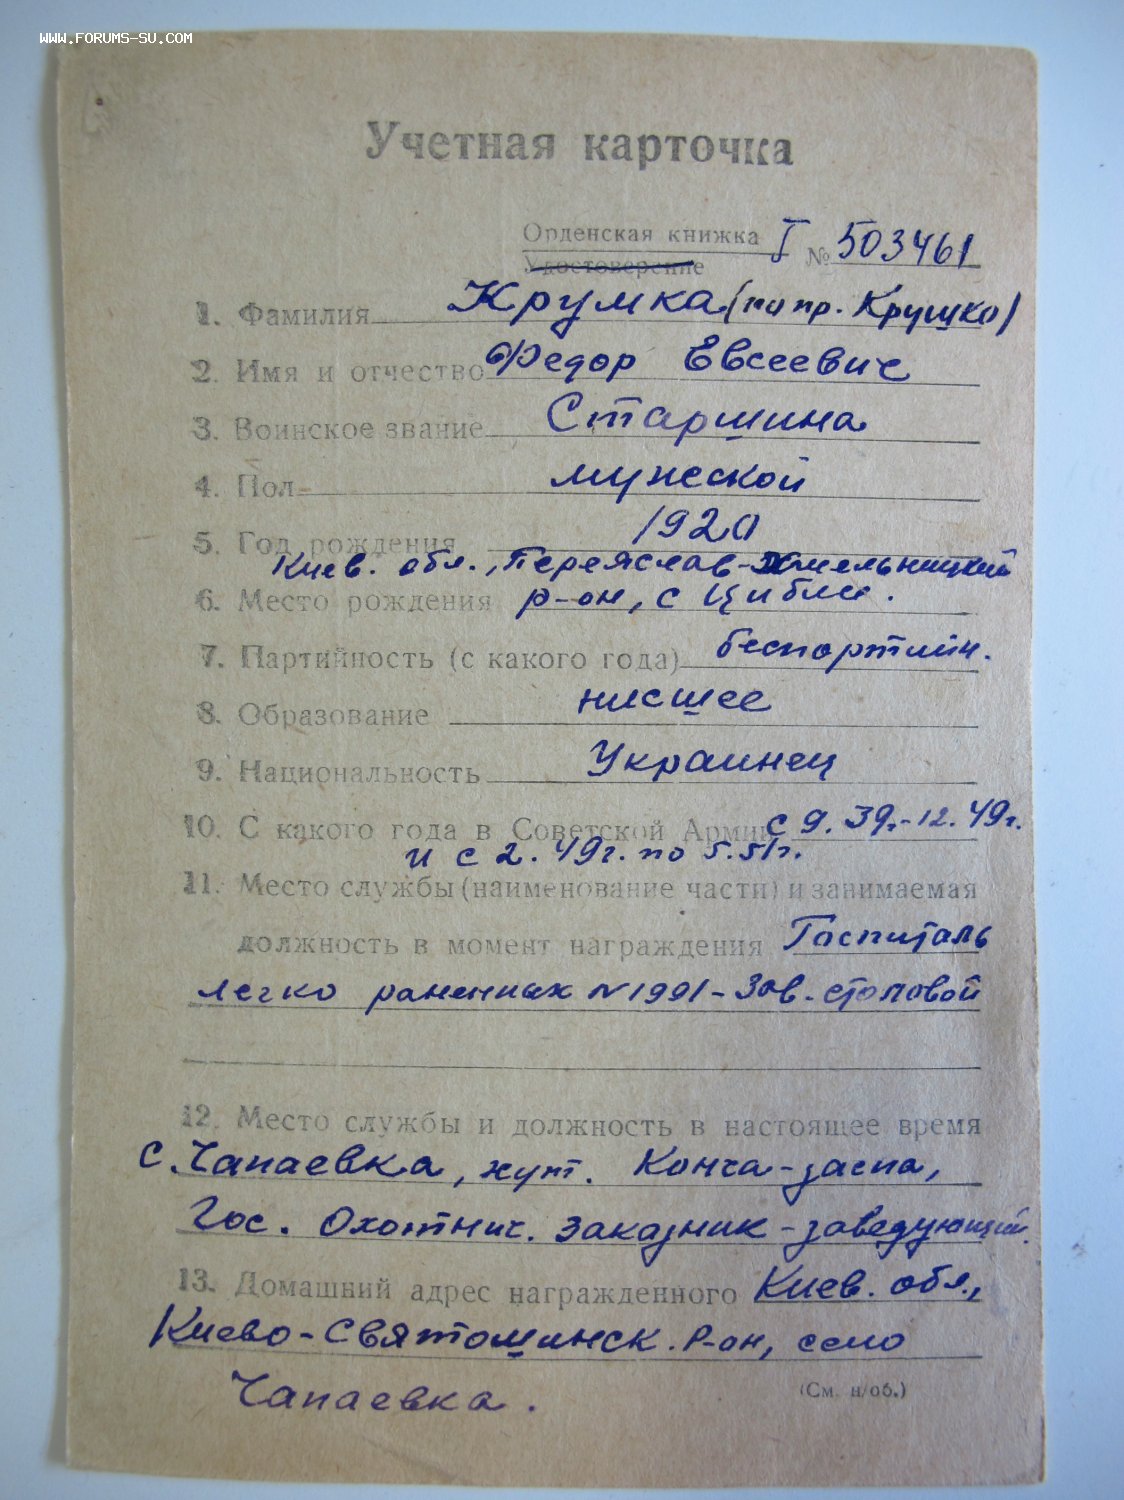 WWW.FORUMS-SU.COM
Учетная карточка
Орденская книжка I № 503461
Удостоверение
1. Фамилия Крумка (по пр. Крушко)
2. Имя и отчество Федор Евсеевич
3. Воинское звание Старшина
4. Пол мужской
5. Год рождения 1920
Киев. обл., Переяслав-Хмельницкий
6. Место рождения р-он, с Цибли.
7. Партийность (с какого года) беспартийн.
8. Образование нисшее
9. Национальность Украинец
10. С какого года в Советской Армии с 9. 39г.-12. 49г.
и с 2. 49г. по 5.51г.
11. Место службы (наименование части) и занимаемая
должность в момент награждения Госпиталь
легко раненных N 1991 - Зав. столовой
12. Место службы и должность в настоящее время
с. Чапаевка, хут. Конча-заспа,
Гос. Охотнич. заказник - заведующий.
13. Домашний адрес награжденного Киев. обл.,
Киево-Святошинск. р-он, село
Чапаевка.
(См. н/об.)